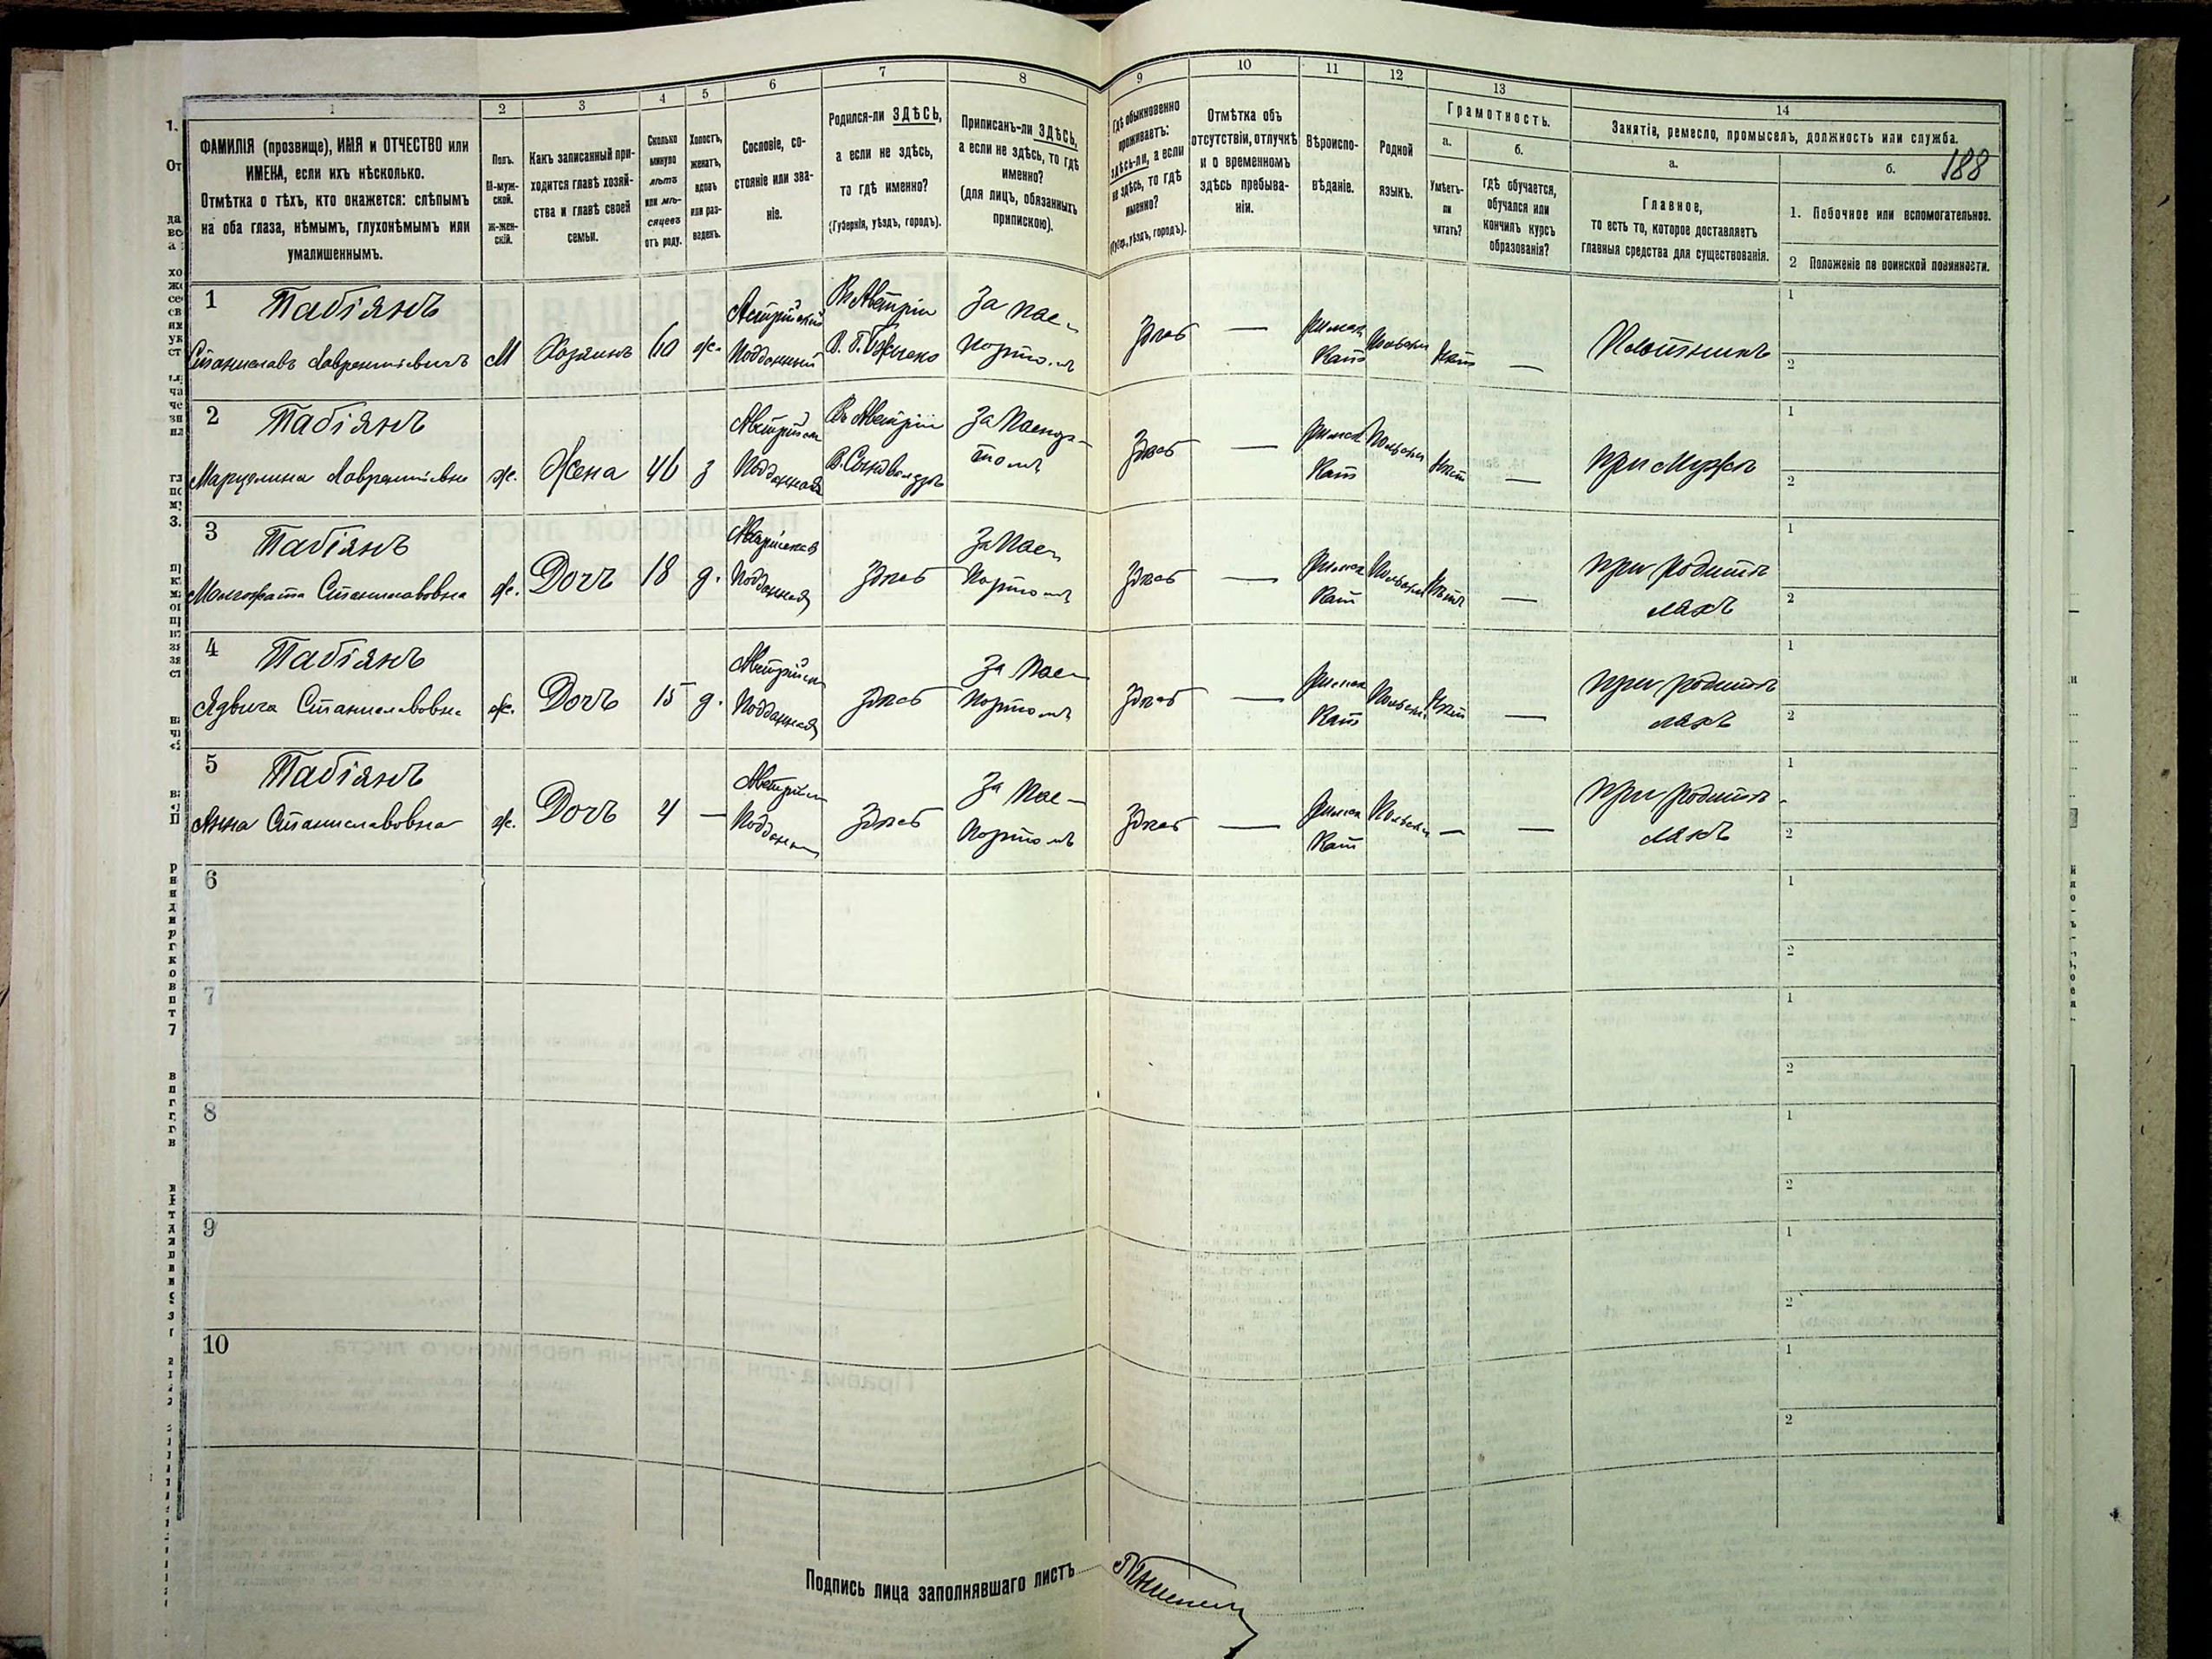 1 2 3 4 5 6 7 8 9 10 11 12 13 14
188
ФАМИЛІЯ (прозвище), ИМЯ и ОТЧЕСТВО или
ИМЕНА, если ихъ нѣсколько.
Отмѣтка о тѣхъ, кто окажется: слѣпымъ
на оба глаза, нѣмымъ, глухонѣмымъ или
умалишеннымъ.
Полъ.
М-муж-
ской.
Ж-жен-
скій.
Какъ записанный при-
ходится главѣ хозяй-
ства и главѣ своей
семьи.
Сколько
минуло
лѣтъ
или мѣ-
сяцевъ
отъ роду.
Холостъ,
женатъ,
вдовъ
или раз-
веденъ.
Сословіе, со-
стояніе или зва-
ніе.
Родился-ли ЗДѢСЬ,
а если не здѣсь,
то гдѣ именно?
(Губернія, уѣздъ, городъ).
Приписанъ-ли ЗДѢСЬ,
а если не здѣсь, то гдѣ
именно?
(для лицъ, обязанныхъ
припискою).
Гдѣ обыкновенно
проживаетъ:
здѣсь-ли, а если
не здѣсь, то гдѣ
именно?
(Губер., уѣздъ, городъ).
Отмѣтка объ
отсутствіи, отлучкѣ
и о временномъ
здѣсь пребыва-
ніи.
Вѣроиспо-
вѣданіе.
Родной
языкъ.
Грамотность.
а.
Умѣетъ-
ли
читать?
б.
гдѣ обучается,
обучался или
кончилъ курсъ
образованія?
Занятіе, ремесло, промыселъ, должность или служба.
а.
Главное,
то есть то, которое доставляетъ
главныя средства для существованія.
б.
1. Побочное или вспомогательное.
2 Положеніе по воинской повинности.
1 Табіянъ
Станиславъ Лаврентіевичъ М Хозяинъ 60 ж.
Австрійскій
Подданный
Въ Австріи
За пас-
портомъ
Здѣсь —
Римск
Кат
Польскій Нѣтъ —
1
2
2 Табіянъ
Марцелина Лаврентіевна ж. Жена 46 з
Австрійск
Подданная
Въ Австріи
За Паспор-
томъ
Здѣсь —
Римск
Кат
Польскій Нѣтъ — при Мужѣ
1
2
3 Табіянъ
Малгожата Станиславовна ж. Дочь 18 д.
Австрійская
Подданная
Здѣсь
За Пас-
портомъ
Здѣсь —
Римск
Кат
Польскій Нѣтъ —
при родите
ляхъ
1
2
4 Табіянъ
Ядвига Станиславовна ж. Дочь 15 д.
Австрійск
Подданная
Здѣсь
За Пас-
портомъ
Здѣсь —
Римск
Кат
Польскій Нѣтъ —
при родите
ляхъ
1
2
5 Табіянъ
Анна Станиславовна ж. Дочь 4 —
Австрійск
Поддан
Здѣсь
За Пас-
портомъ
Здѣсь —
Римск
Кат
Польскій — —
при родите
ляхъ
1
2
6
1
2
7
1
2
8
1
2
9
1
2
10
1
2
Подпись лица заполнявшаго листъ